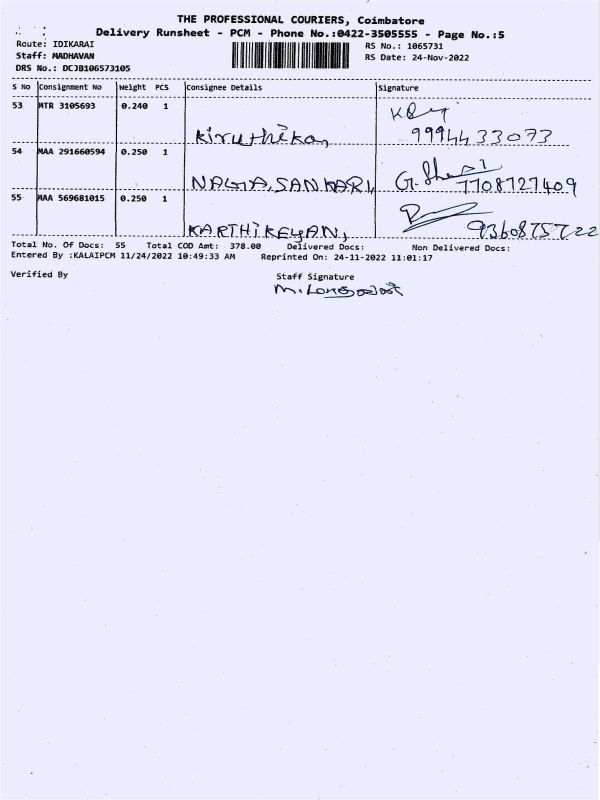 THE PROFESSIONAL COURIERS, Coimbatore
Delivery Runsheet - PCM - Phone No.:0422-3505555 - Page No.:5
Route: IDIKARAI
RS No.: 1065731
Staff: MADHAVAN
RS Date: 24-Nov-2022
DRS No.: DCJB106573105
S No Consignment No Weight PCS Consignee Details Signature
53 MTR 3105693 0.240 1
Kiruthika, 9994433073
54 MAA 291660594 0.250 1
NAGA SANKARI, 7708727409
55 MAA 569681015 0.250 1
KARTHIKEYAN, 9360875722
Total No. Of Docs: 55 Total COD Amt: 378.00 Delivered Docs: Non Delivered Docs:
Entered By :KALAIPCM 11/24/2022 10:49:33 AM Reprinted On: 24-11-2022 11:01:17
Verified By Staff Signature